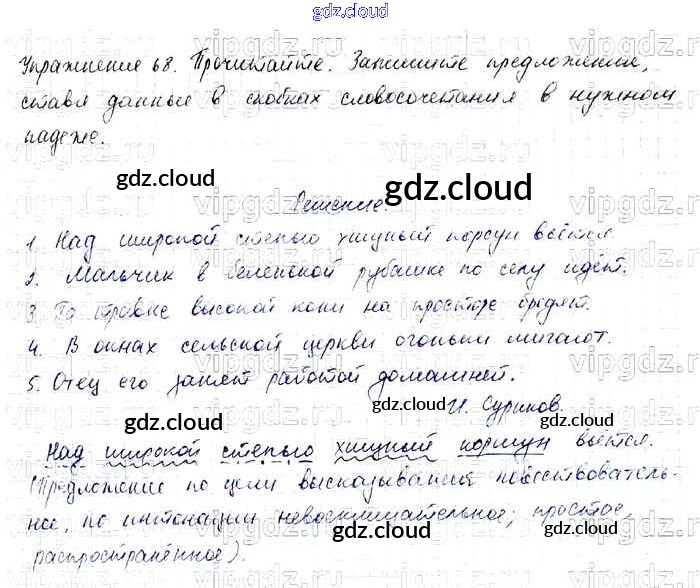 gdz.cloud
Упражнение 68. Прочитайте. Запишите предложения,
ставя данные в скобках словосочетания в нужном
падеже.
gdz.cloud
gdz.cloud
Решение.
1. Над широкой степью хищный коршун вьётся.
2. Мальчик в беленькой рубашке по селу идёт.
3. По травке высокой кони на просторе бродят.
4. В окнах сельской церкви огоньки мигают.
5. Отец его занят работой домашней.
И. Суриков.
gdz.cloud
gdz.cloud
Над широкой степью хищный коршун вьётся.
(Предложение по цели высказывания повествователь-
ное, по интонации невосклицательное; простое,
распространённое).
gdz.cloud
gdz.cloud